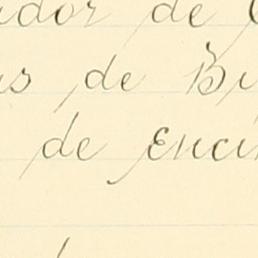 ador de
s de Bu
de Enci